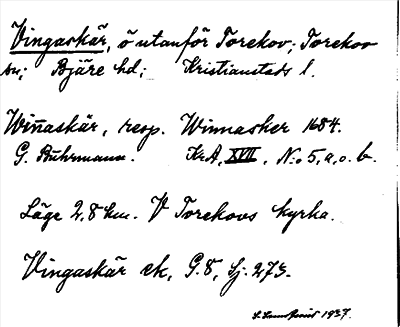 Vingaskär, ö utanför Torekov; Torekov
sn; Bjäre hd; Kristianstads l.
Win̄askär, resp. Winnasker 1684.
G. Buhrmann. Kr.A, XVII, N:o 5, a, o. b.
Läge 2,8 km. V Torekovs kyrka.
Vingaskär ek, G.8, Sj. 273.
1937.